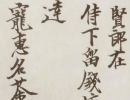 賢郎在
侍下留
達
寵惠名